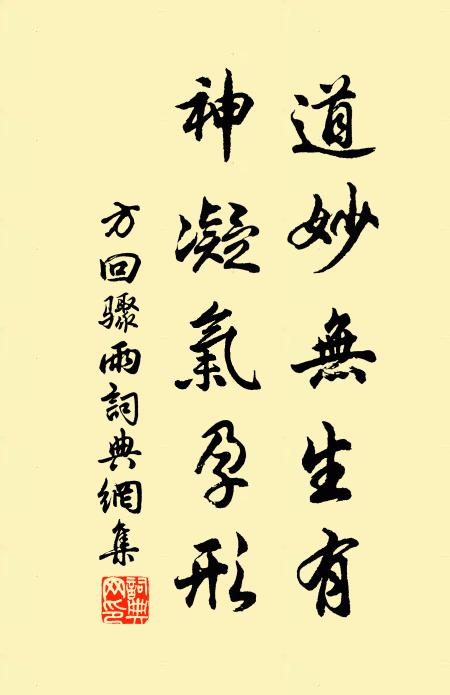 道妙無生有
神凝氣孕形
方回驟雨詞典網集
詞典网印